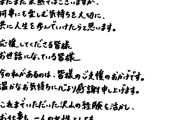 まだまだ未熟ではございますが、
何事にも楽しむ気持ちを大切に、
共に人生を歩んでいけたらと思います。
応援してくださる皆様
お世話になっている皆様
今の私があるのは、皆様のご支援のおかげです。
温かなお気持ちに心より感謝申し上げます。
これまでいただいた沢山の経験も活かし、
お仕事も、一人の女性としても